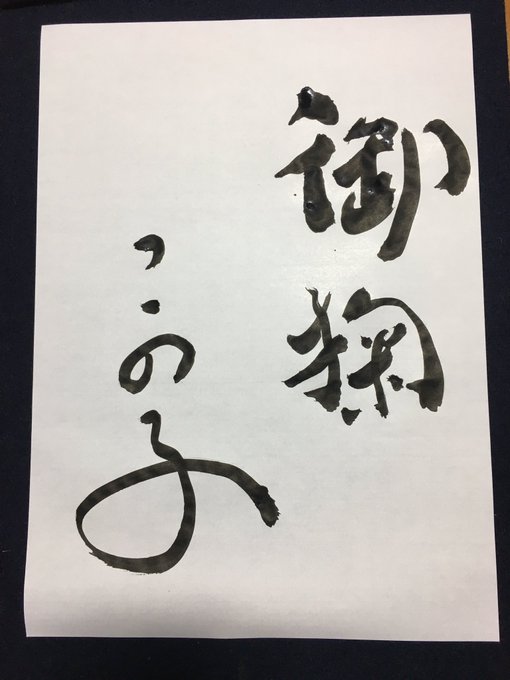 御鞠
この子